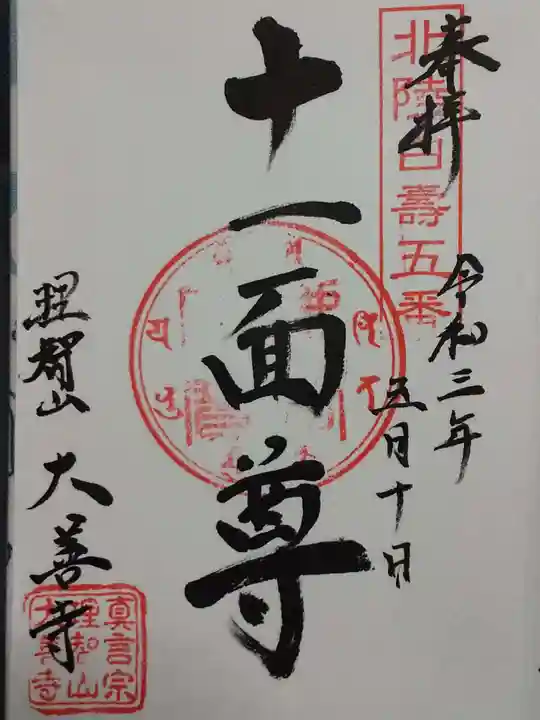 奉拝
北陸白寿五番
令和三年
五月十日
十一面尊
照智山 大善寺
真言宗
理智山
大善寺